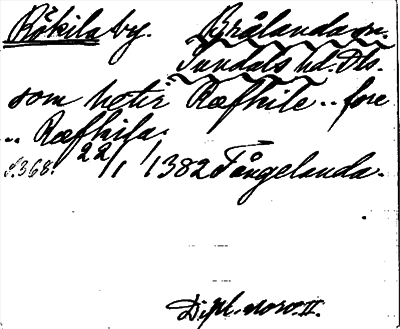 Rökila by. Brålanda sn.
Sundals hd. Dls.
som heter Ræfhile .. fore
.. Ræfhila.
s.368. 22/1 1382 Fångelanda.
Dipl. norv. II.